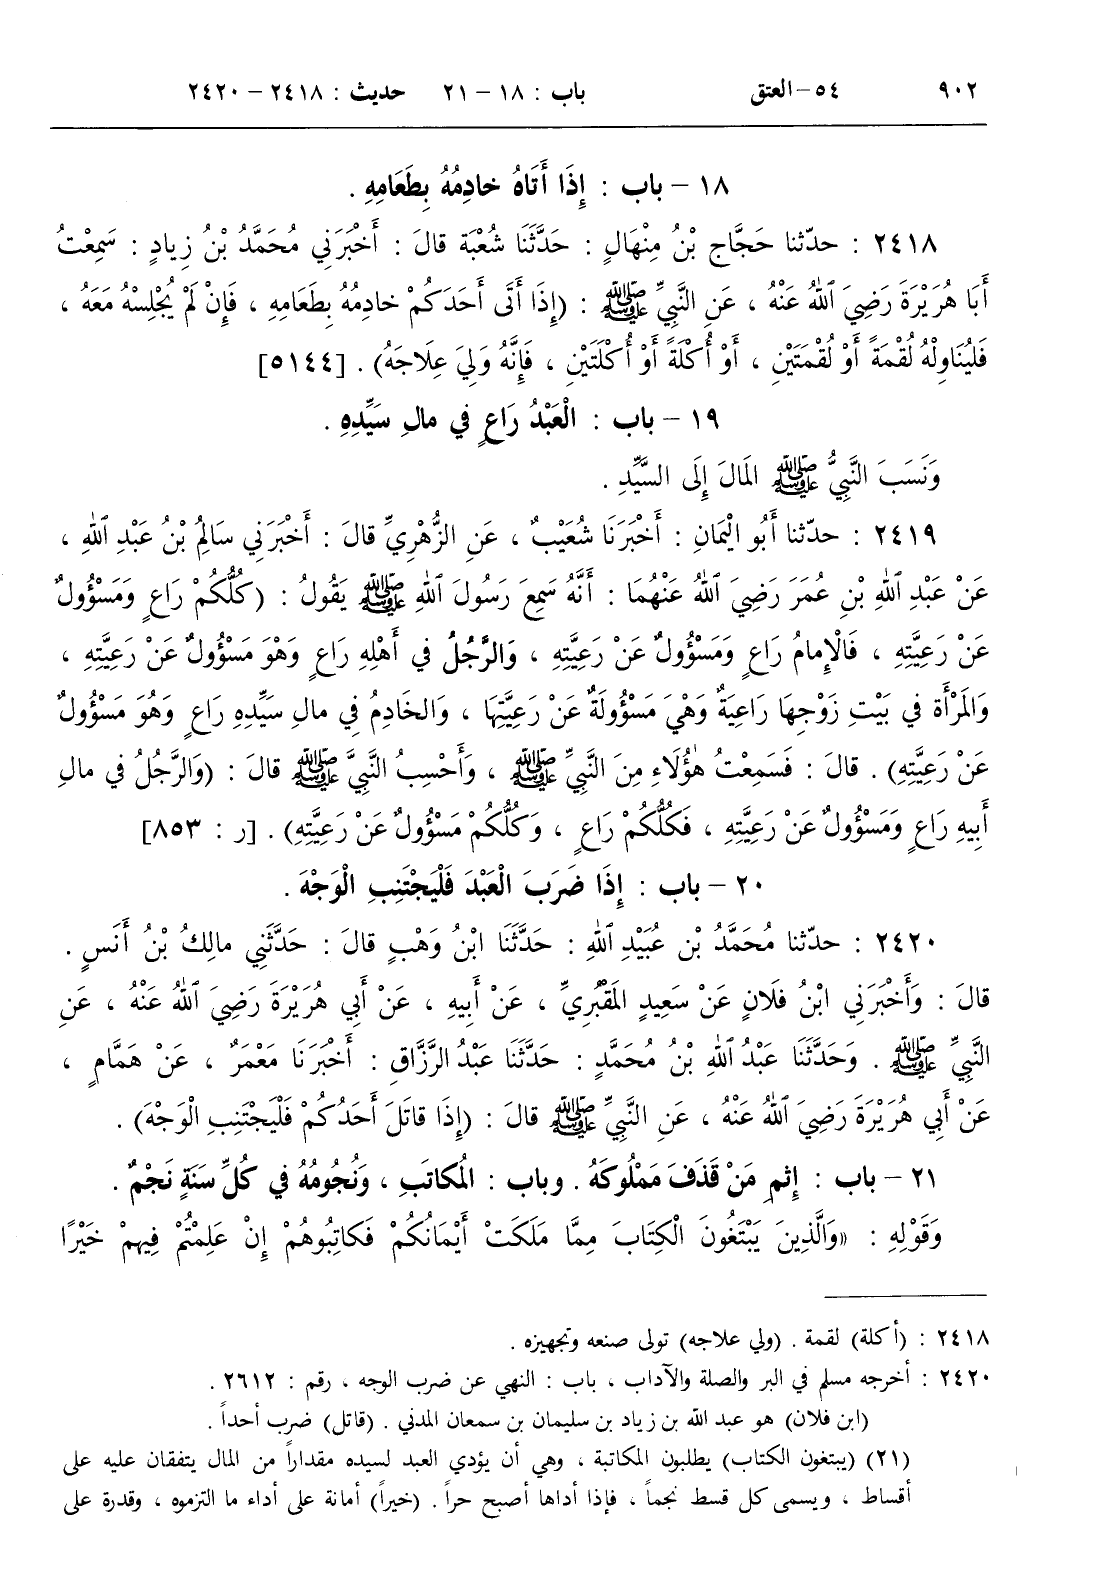 ٩٠٢ ٥٤-العتق باب : ١٨ - ٢١ حديث : ٢٤١٨ - ٢٤٢٠
١٨ - باب : إِذَا أَتَاهُ خادِمُهُ بِطَعَامِهِ .
٢٤١٨ : حدّثنا حَجَّاج بْنُ مِنْهَالٍ : حَدَّثَنَا شُعْبَة قالَ : أَخْبَرَنِي مُحَمَّدُ بْنُ زِيادٍ : سَمِعْتُ
أَبَا هُرَيْرَةَ رَضِيَ ٱللهُ عَنْهُ ، عَنِ النَّبِيِّ ﷺ : (إِذَا أَتَى أَحَدَكُمْ خادِمُهُ بِطَعَامِهِ ، فَإِنْ لَمْ يُجْلِسْهُ مَعَهُ ،
فَلْيُنَاوِلْهُ لُقْمَةً أَوْ لُقْمَتَيْنِ ، أَوْ أُكْلَةً أَوْ أُكْلَتَيْنِ ، فَإِنَّهُ وَلِيَ عِلَاجَهُ) . [٥١٤٤]
١٩ - باب : الْعَبْدُ رَاعٍ في مالِ سَيِّدِهِ .
وَنَسَبَ النَّبِيُّ ﷺ المَالَ إِلَى السَّيِّدِ .
٢٤١٩ : حدّثنا أَبُو الْيَمَانِ : أَخْبَرَنَا شُعَيْبٌ ، عَنِ الزُّهْرِيِّ قالَ : أَخْبَرَنِي سَالِمُ بْنُ عَبْدِ ٱللهِ ،
عَنْ عَبْدِ ٱللهِ بْنِ عُمَرَ رَضِيَ ٱللهُ عَنْهُمَا : أَنَّهُ سَمِعَ رَسُولَ ٱللهِ ﷺ يَقُولُ : (كُلُّكُمْ رَاعٍ وَمَسْؤُولٌ
عَنْ رَعِيَّتِهِ ، فَالْإِمامُ رَاعٍ وَمَسْؤُولٌ عَنْ رَعِيَّتِهِ ، وَالرَّجُلُ في أَهْلِهِ رَاعٍ وَهْوَ مَسْؤُولٌ عَنْ رَعِيَّتِهِ ،
وَالمَرْأَة في بَيْتِ زَوْجِهَا رَاعِيَةٌ وَهْيَ مَسْؤُولَةٌ عَنْ رَعِيَّتِهَا ، وَالخَادِمُ في مالِ سَيِّدِهِ رَاعٍ وَهُوَ مَسْؤُولٌ
عَنْ رَعِيَّتِهِ) . قالَ : فَسَمِعْتُ هٰؤُلَاءِ مِنَ النَّبِيِّ ﷺ ، وَأَحْسِبُ النَّبِيَّ ﷺ قالَ : (وَالرَّجُلُ في مالِ
أَبِيهِ رَاعٍ وَمَسْؤُولٌ عَنْ رَعِيَّتِهِ ، فَكُلُّكُمْ رَاعٍ ، وَكُلُّكُمْ مَسْؤُولٌ عَنْ رَعِيَّتِهِ) . [ر : ٨٥٣]
٢٠ - باب : إِذَا ضَرَبَ الْعَبْدَ فَلْيَجْتَنِبِ الْوَجْهَ .
٢٤٢٠ : حدّثنا مُحَمَّدُ بْن عُبَيْدِ ٱللهِ : حَدَّثَنَا ابْنُ وَهْبٍ قالَ : حَدَّثَنِي مالِكُ بْنُ أَنَسٍ .
قالَ : وَأَخْبَرَنِي ابْنُ فُلَانٍ عَنْ سَعِيدٍ المَقْبُرِيِّ ، عَنْ أَبِيهِ ، عَنْ أَبِي هُرَيْرَةَ رَضِيَ ٱللهُ عَنْهُ ، عَنِ
النَّبِيِّ ﷺ . وَحَدَّثَنَا عَبْدُ ٱللهِ بْنُ مُحَمَّدٍ : حَدَّثَنَا عَبْدُ الرَّزَّاقِ : أَخْبَرَنَا مَعْمَرٌ ، عَنْ هَمَّامٍ ،
عَنْ أَبِي هُرَيْرَةَ رَضِيَ ٱللهُ عَنْهُ ، عَنِ النَّبِيِّ ﷺ قالَ : (إِذَا قاتَلَ أَحَدُكُمْ فَلْيَجْتَنِبِ الْوَجْهَ) .
٢١ - باب : إِثمِ مَنْ قَذَفَ مَمْلُوكَهُ . وباب : المُكاتَبِ ، وَنُجُومُهُ في كُلِّ سَنَةٍ نَجْمٌ .
وَقَوْلِهِ : «وَالَّذِينَ يَبْتَغُونَ الْكِتَابَ مِمَّا مَلَكَتْ أَيْمَانُكُمْ فَكاتِبُوهُمْ إِنْ عَلِمْتُمْ فِيهِمْ خَيْرًا
٢٤١٨ : (أكلة) لقمة . (ولي علاجه) تولى صنعه وتجهيزه .
٢٤٢٠ : أخرجه مسلم في البر والصلة والآداب ، باب : النهي عن ضرب الوجه ، رقم : ٢٦١٢ .
(ابن فلان) هو عبد الله بن زياد بن سليمان بن سمعان المدني . (قاتل) ضرب أحداً .
(٢١) (يبتغون الكتاب) يطلبون المكاتبة ، وهي أن يؤدي العبد لسيده مقداراً من المال يتفقان عليه على
أقساط ، ويسمى كل قسط نجماً ، فإذا أداها أصبح حراً . (خيراً) أمانة على أداء ما التزموه ، وقدرة على